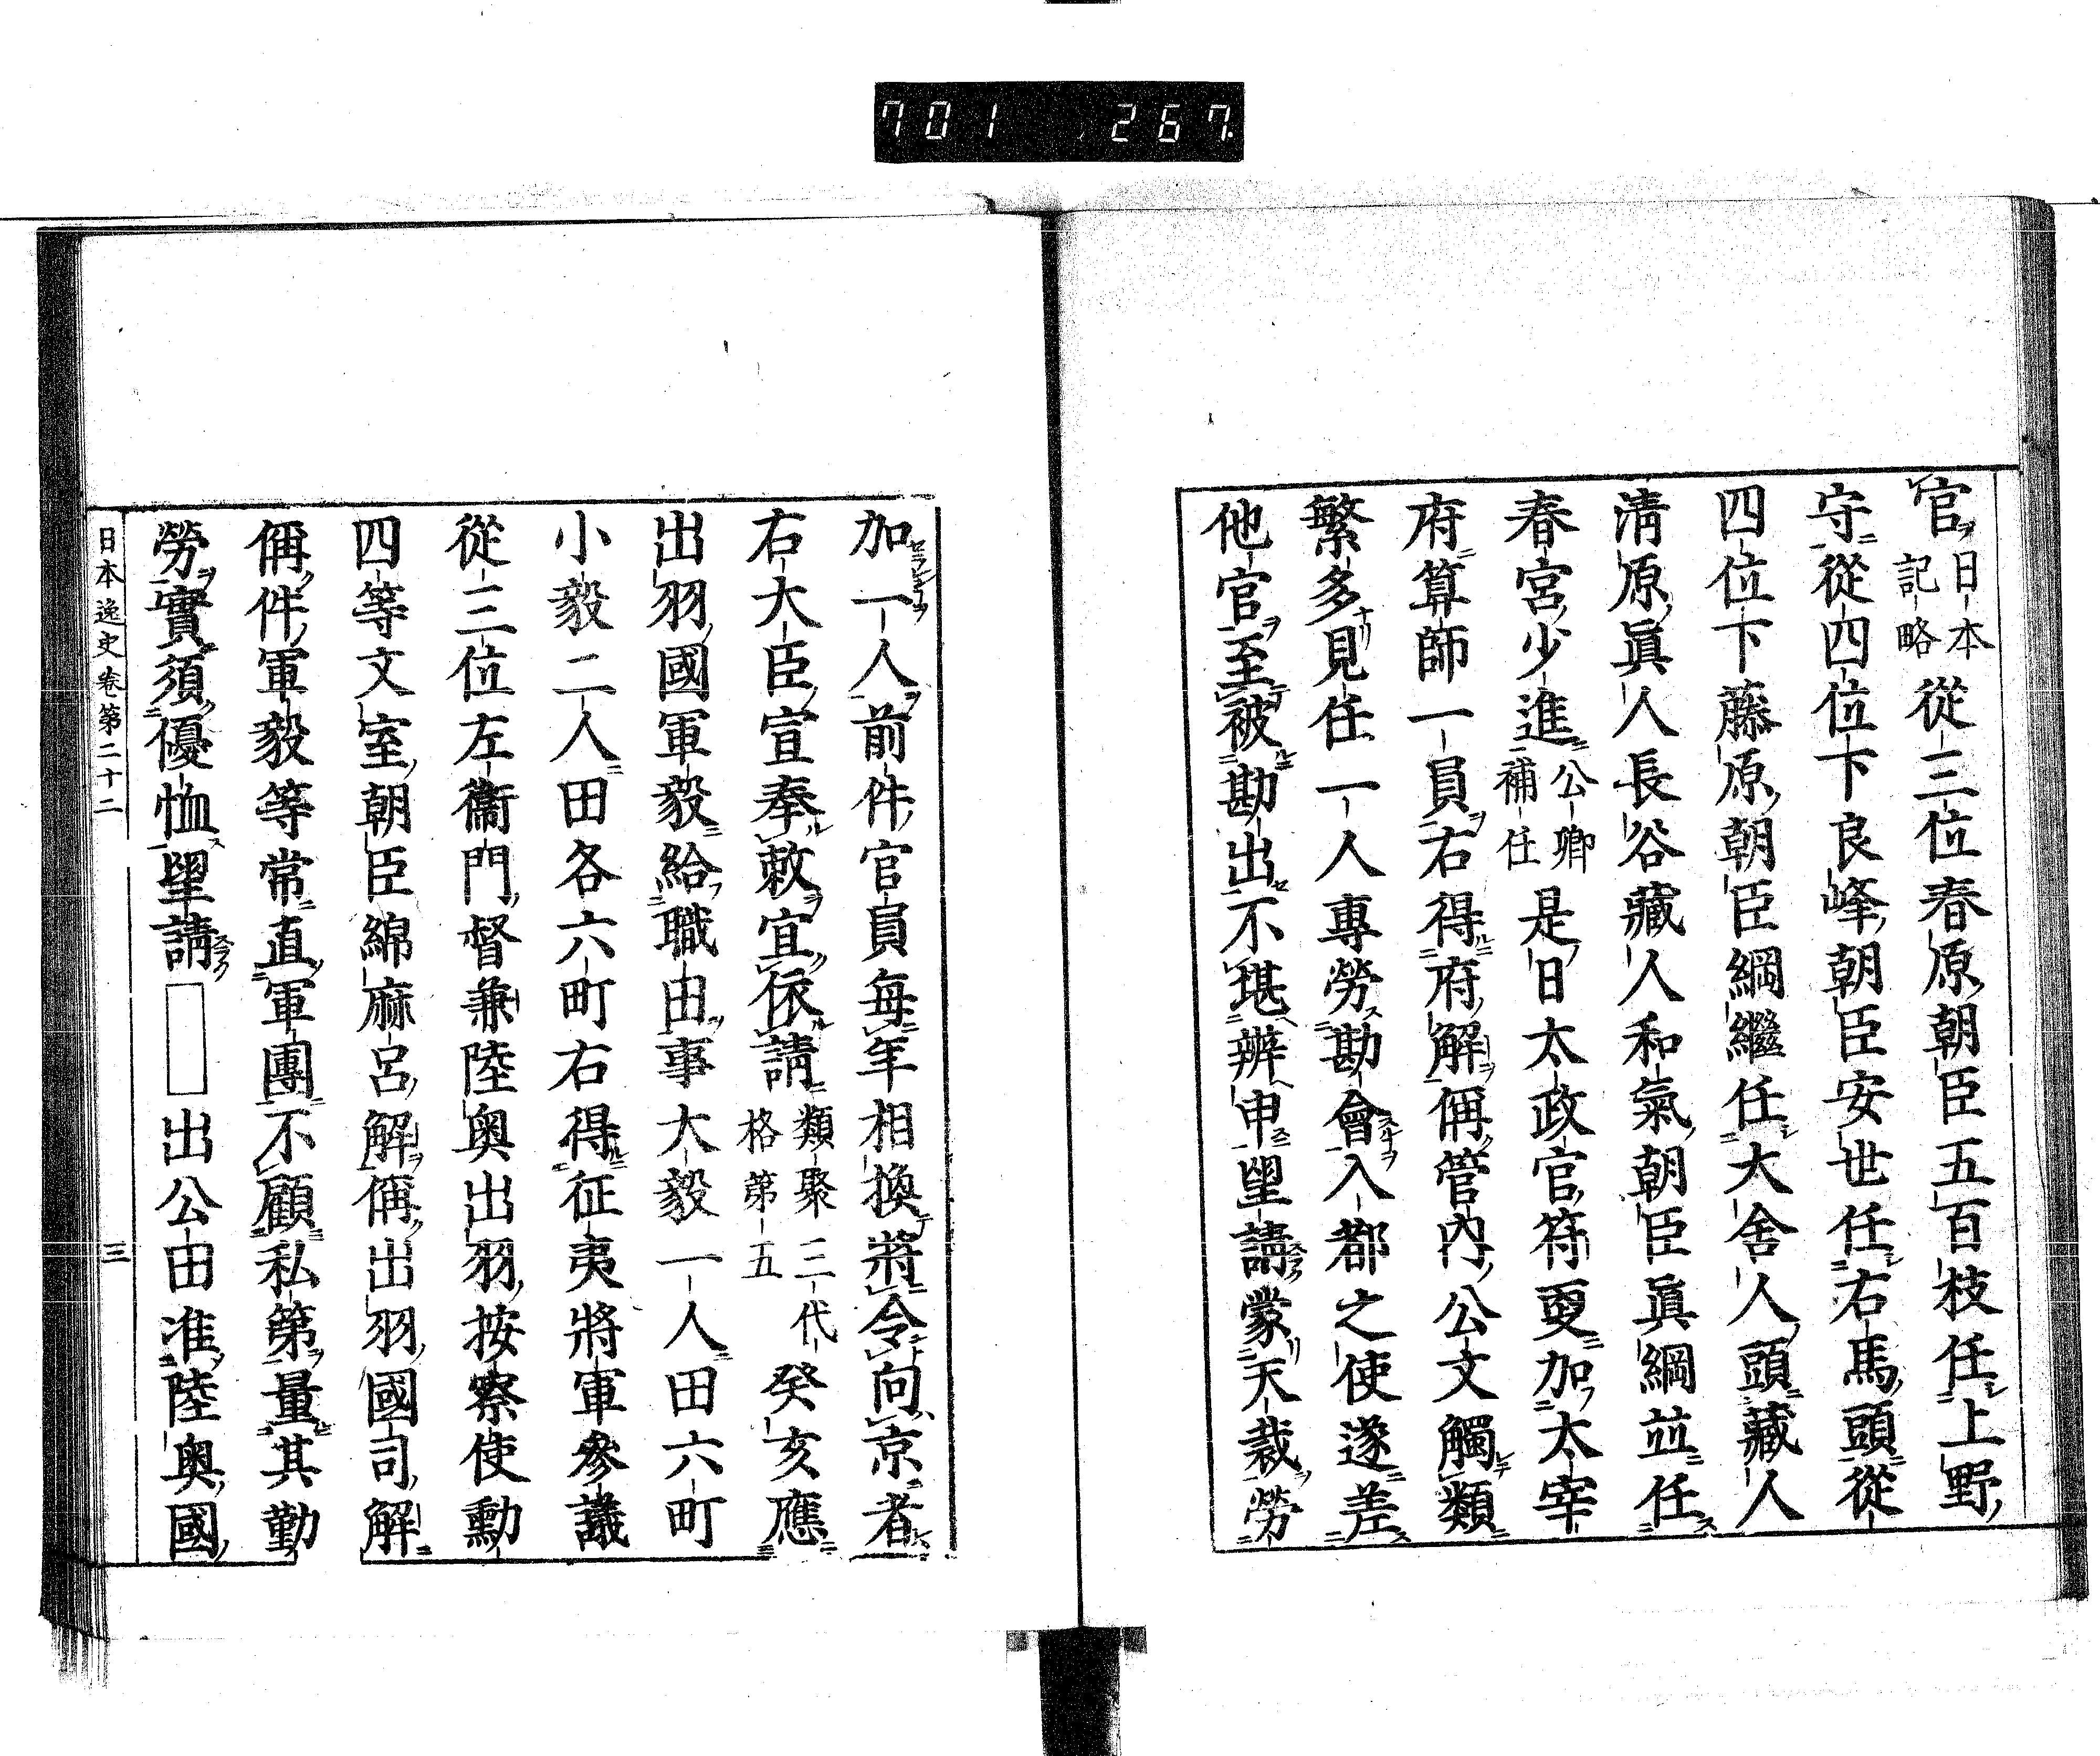 701 267
官日本記略從三位春原朝臣五百枝任上野
守從四位下良峰朝臣安世任右馬頭從
四位下藤原朝臣綱繼任大舍人頭藏人
淸原眞人長谷藏人和氣朝臣眞綱並任
春宮少進公卿補任是日太政官符更加太宰
府算師一員右得府解偁管內公文觸類
繁多見任一人專勞勘會入都之使遂差
他官至被勘出不堪辨申望請蒙天裁勞
加一人前件官員每年相換將令向京者
右大臣宣奉敕宜依請類聚三代格第五癸亥應
出羽國軍毅給職田事大毅一人田六町
小毅二人田各六町右得征夷將軍參議
從三位左衞門督兼陸奧出羽按察使勳
四等文室朝臣綿麻呂解偁出羽國司解
偁件軍毅等常直軍團不顧私第量其勤
勞實須優恤望請出公田准陸奧國
日本逸史卷第二十二 三